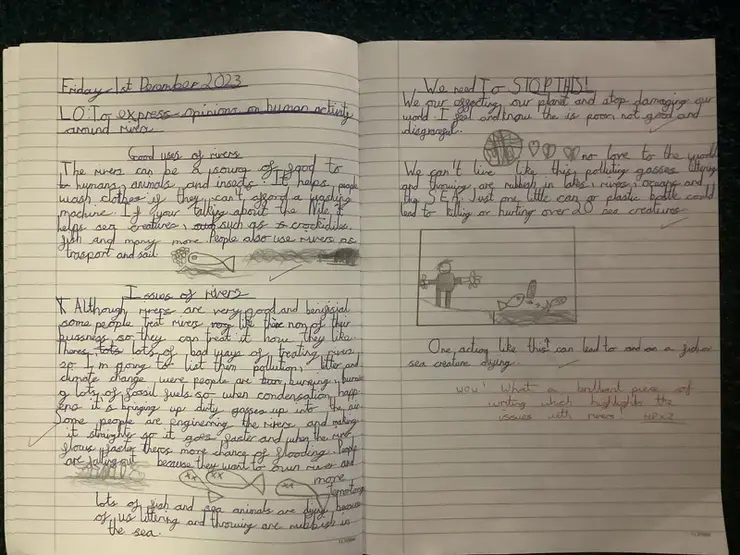 Friday 1st December 2023
L.O: To express opinions on human activity
around rivers
Good uses of rivers
The rivers can be a sourg of good to
humans, animals, and insects. It helps people
wash clothes if they can't afford a washing
machine. If your talking about the Nile, it
helps sea creatures, such as crockidiles,
fish and many more. People also use rivers as
trasport and sail.
Issues of rivers
Although rivers are very good and benificial
some people treat rivers like non of their
bussness so they can treat it how they like
theres lots of bad ways of treating rivers
so I'm going to list them pollution, litter and
climate change were people are burning
lots of fossil fuels so when condensation happ-
ens it is bringing up duty gasses up into the air
Some people are engineering the rivers and making
it straight so it goes faster and when the river
flows faster theres more chance of flooding. People
are falling out because they want to own river and
more
lots of fish and sea animals are dying because
of us littering and throwing are rubbish in
the sea.
We need To STOP THIS!
We our effecting our planet and stop damaging our
world I feel and know the is poor, not good and
disgraceful.
no love to the world
We can't live like this, polluting gasses littering
and throwing are rubbish in lakes, rivers, oceans and
the SEA. Just one little can or plastic bottle could
lead to killing or hurting over 20 sea creatures.
One action like this can lead to a fish or
sea creature dying.
Wow! What a brilliant piece of
writing which highlights the
issues with rivers!